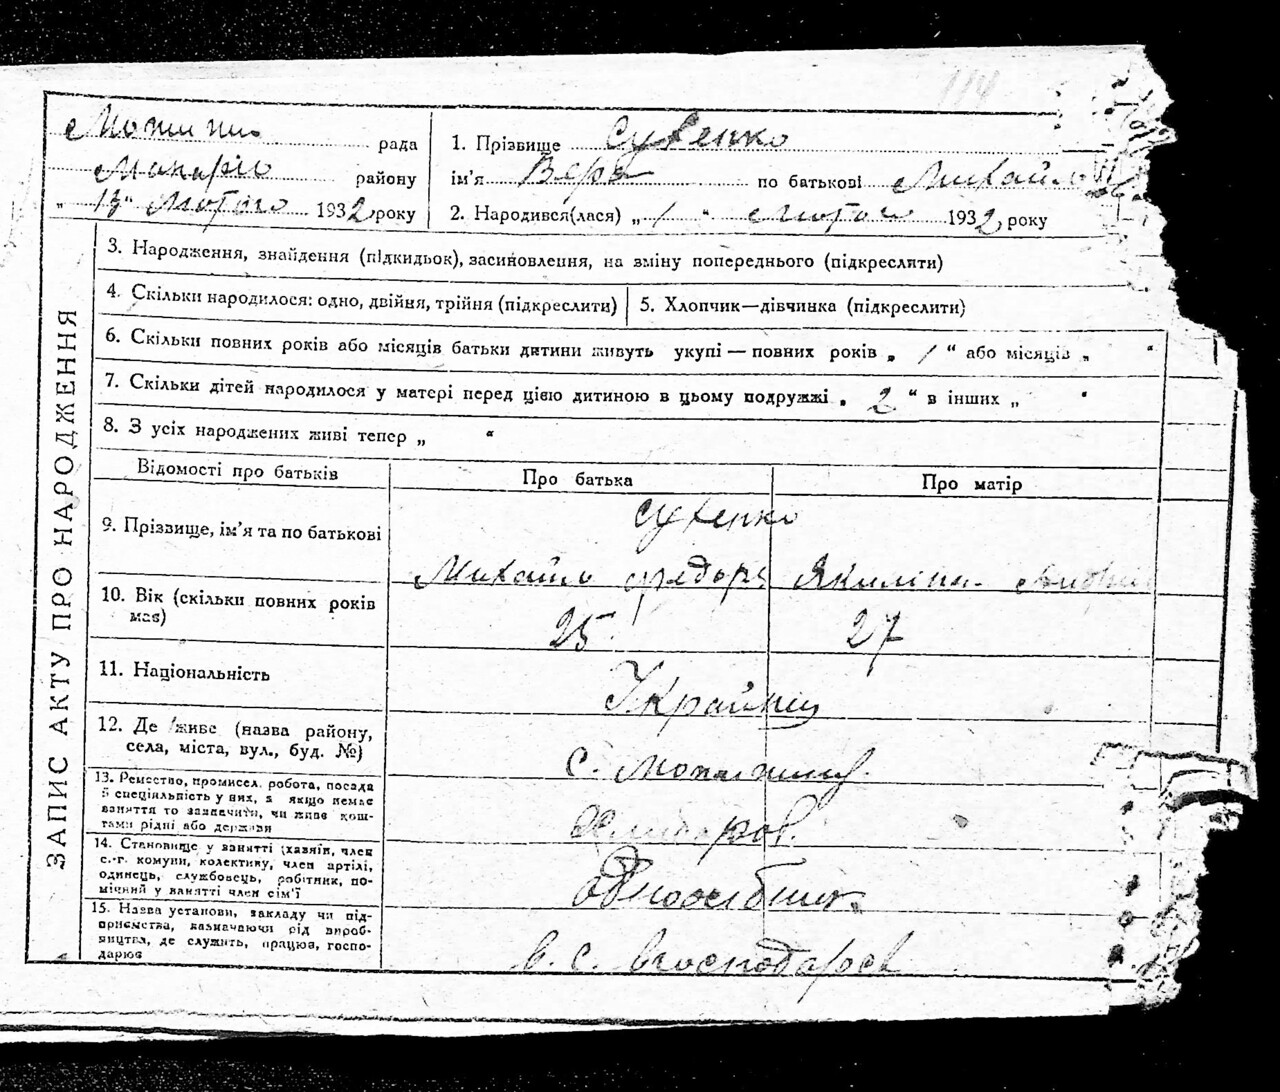 114
рада
району
"13" Лютого 1932 року
1. Прізвище Сухенко
ім'я Вера по батькові Михайл
2. Народився(лася) „ 1 " Лютого 1932 року
ЗАПИС АКТУ ПРО НАРОДЖЕННЯ
3. Народження, знайдення (підкидьок), засиновлення, на зміну попереднього (підкреслити)
4. Скільки народилося: одно, двійня, трійня (підкреслити)
5. Хлопчик—дівчинка (підкреслити)
6. Скільки повних років або місяців батьки дитини живуть укупі — повних років „ 1 " або місяців „ "
7. Скільки дітей народилося у матері перед цією дитиною в цьому подружжі „ 2 " в інших „ "
8. З усіх народжених живі тепер „ "
Відомості про батьків
Про батька
Про матір
9. Прізвище, ім'я та по батькові
Сухенко
Михайль Федора Якиліна
10. Вік (скільки повних років
має)
25
27
11. Національність
Українці
12. Де живе (назва району,
села, міста, вул., буд. №)
с.
13. Ремество, промисел, робота, посада
й спеціяльність у них, а якщо немає
заняття то зазначити, чи живе кош-
тами рідні або держави
14. Становище у занятті (хазяїн, член
с.-г. комуни, колективу, член артілі,
одинець, службовець, робітник, по-
мічний у занятті член сім'ї
одноосібник
15. Назва установи, закладу чи під-
приємства, зазначаючи рід вироб-
ництва, де служить, працює, госпо-
дарює
в. с. господарсв